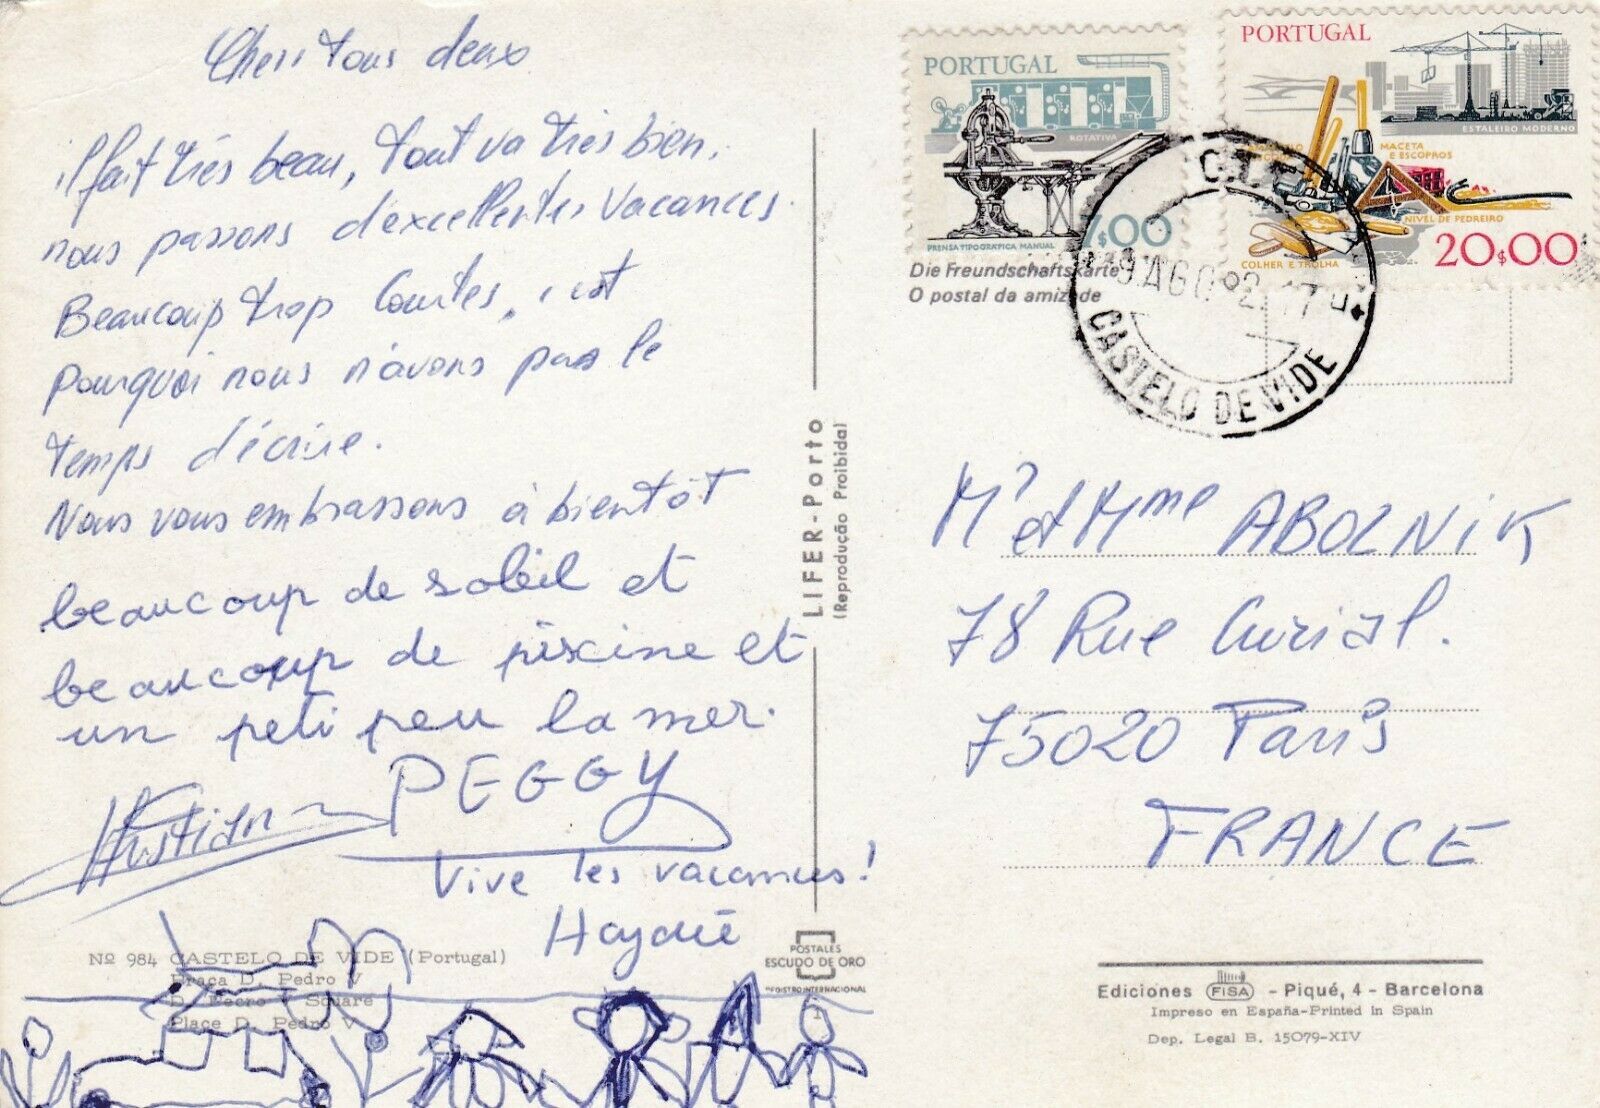 Chers tous deux
il fait très beau, tout va très bien,
nous passons d'excellentes vacances.
Beaucoup trop courtes, c'est
pourquoi nous n'avons pas le
temps d'écrire.
Nous vous embrassons à bientôt
beaucoup de soleil et
beaucoup de piscine et
un peti peu la mer.
PEGGY
Vive les vacances!
Nº 984 CASTELO DE VIDE (Portugal)
Praça D. Pedro V
D. Pedro V Square
Place D. Pedro V
POSTALES
ESCUDO DE ORO
REGISTRO INTERNACIONAL
LIFER-Porto
(Reprodução Proibida)
PORTUGAL
ROTATIVA
PRENSA TIPOGRÁFICA MANUAL
7$00
PORTUGAL
ESTALEIRO MODERNO
MACETA
E ESCOPROS
NIVEL DE PEDREIRO
COLHER E TROLHA
20$00
Die Freundschaftskarte
O postal da amizade
9 AGO 82 17
CASTELO DE VIDE
Mr et Mme ABOLNIK
78 Rue Curial.
75020 Paris
FRANCE
Ediciones FISA - Piqué, 4 - Barcelona
Impreso en España-Printed in Spain
Dep. Legal B. 15079-XIV